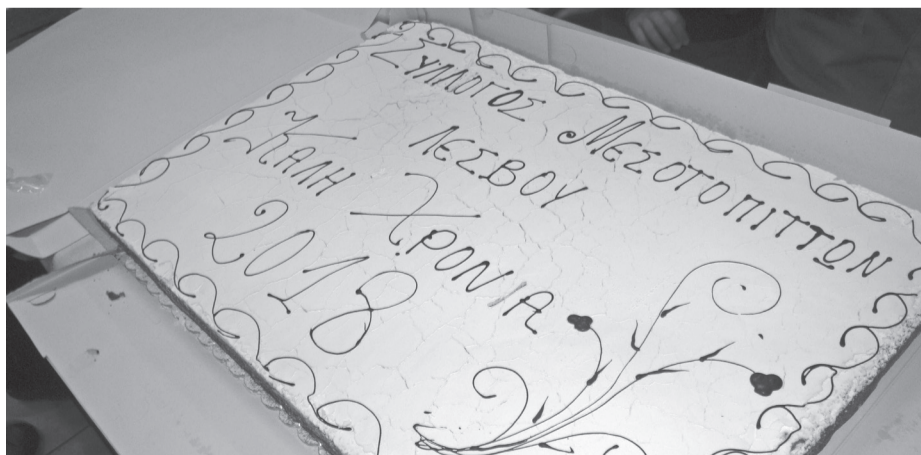 ΣΥΛΛΟΓΟΣ ΜΕΣΟΤΟΠΙΤΤΩΝ
ΛΕΣΒΟΥ
ΚΑΛΗ ΧΡΟΝΙΑ
2018